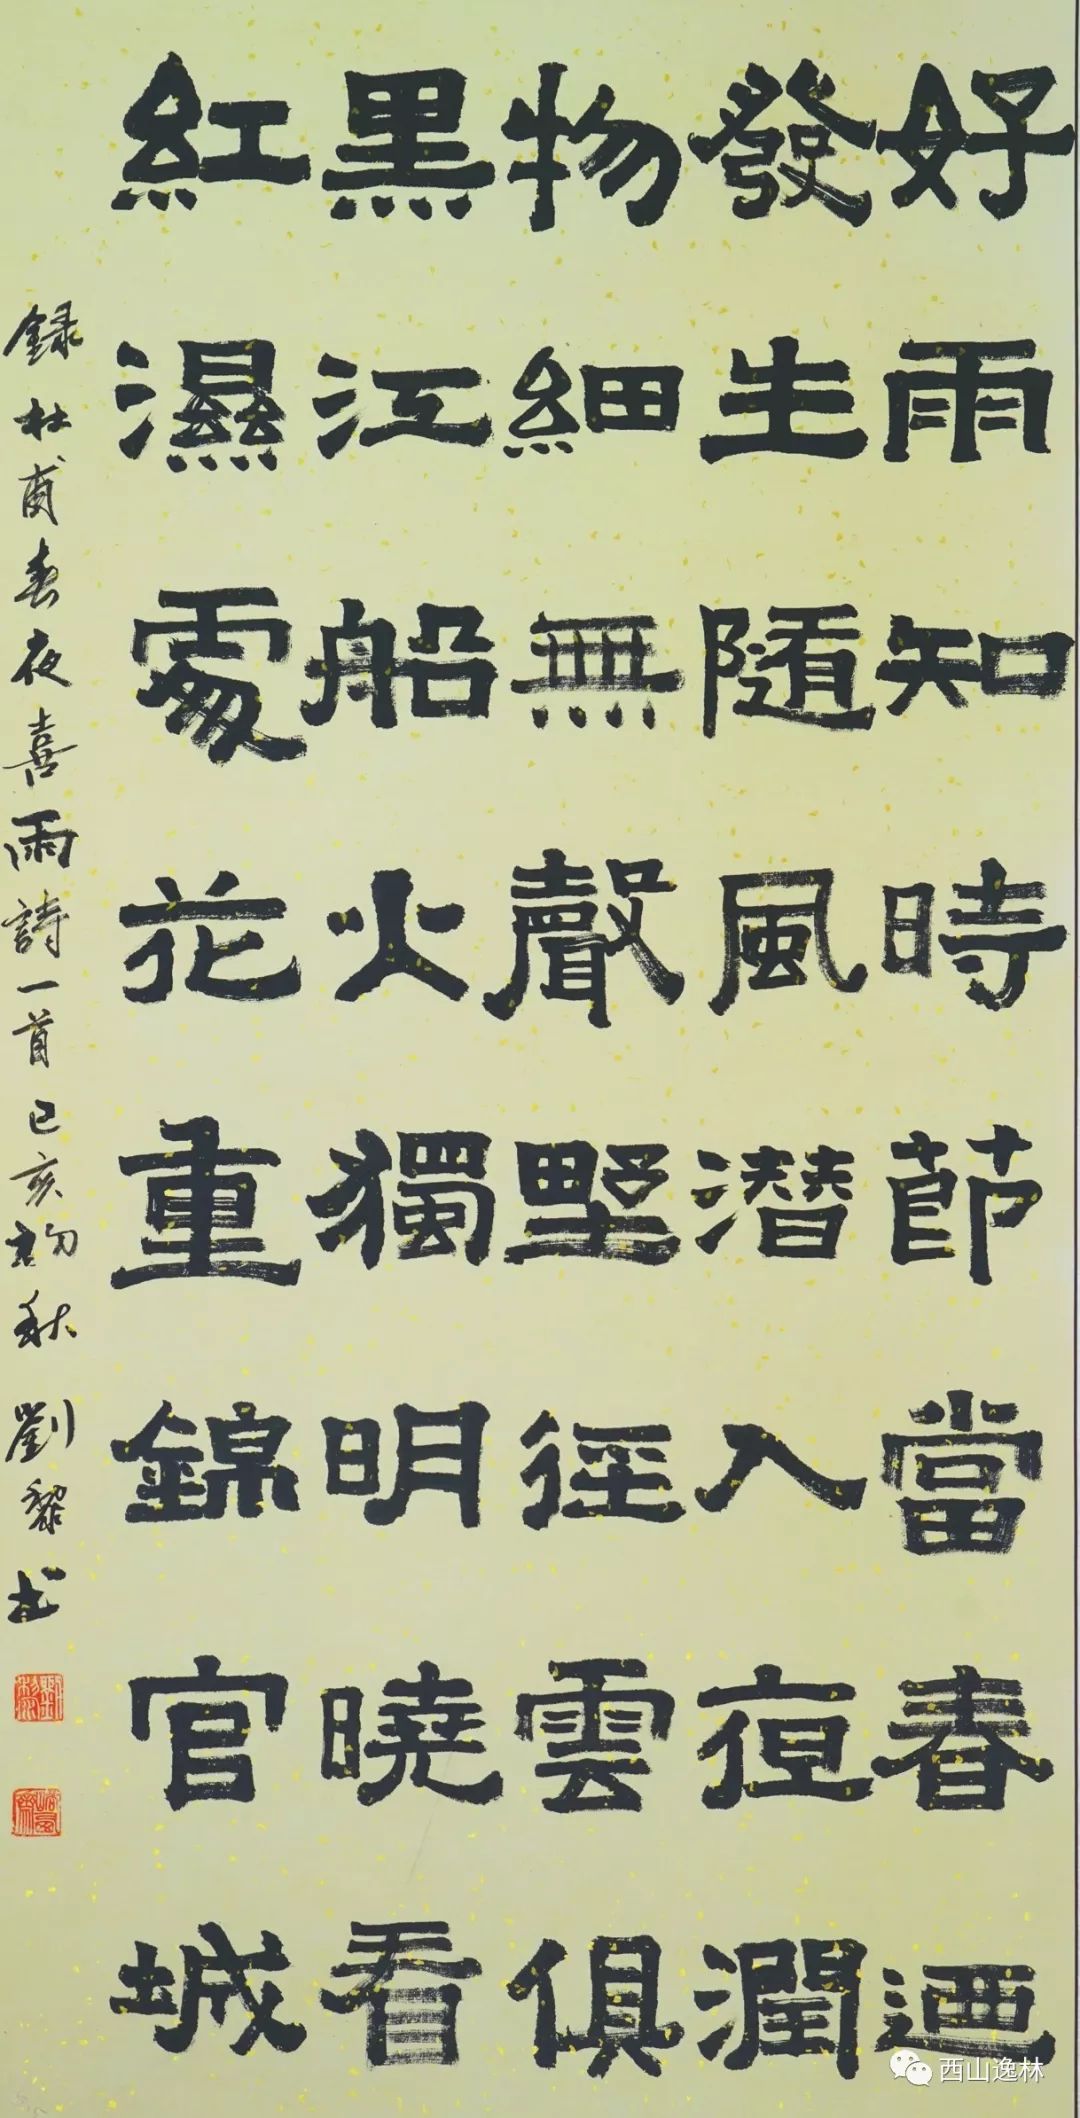 好雨知時節當春迺
發生隨風潛入夜潤
物細無聲野徑雲俱
黑江船火獨明曉看
紅濕處花重錦官城
録杜甫春夜喜雨詩一首己亥初秋劉黎书
西山逸林